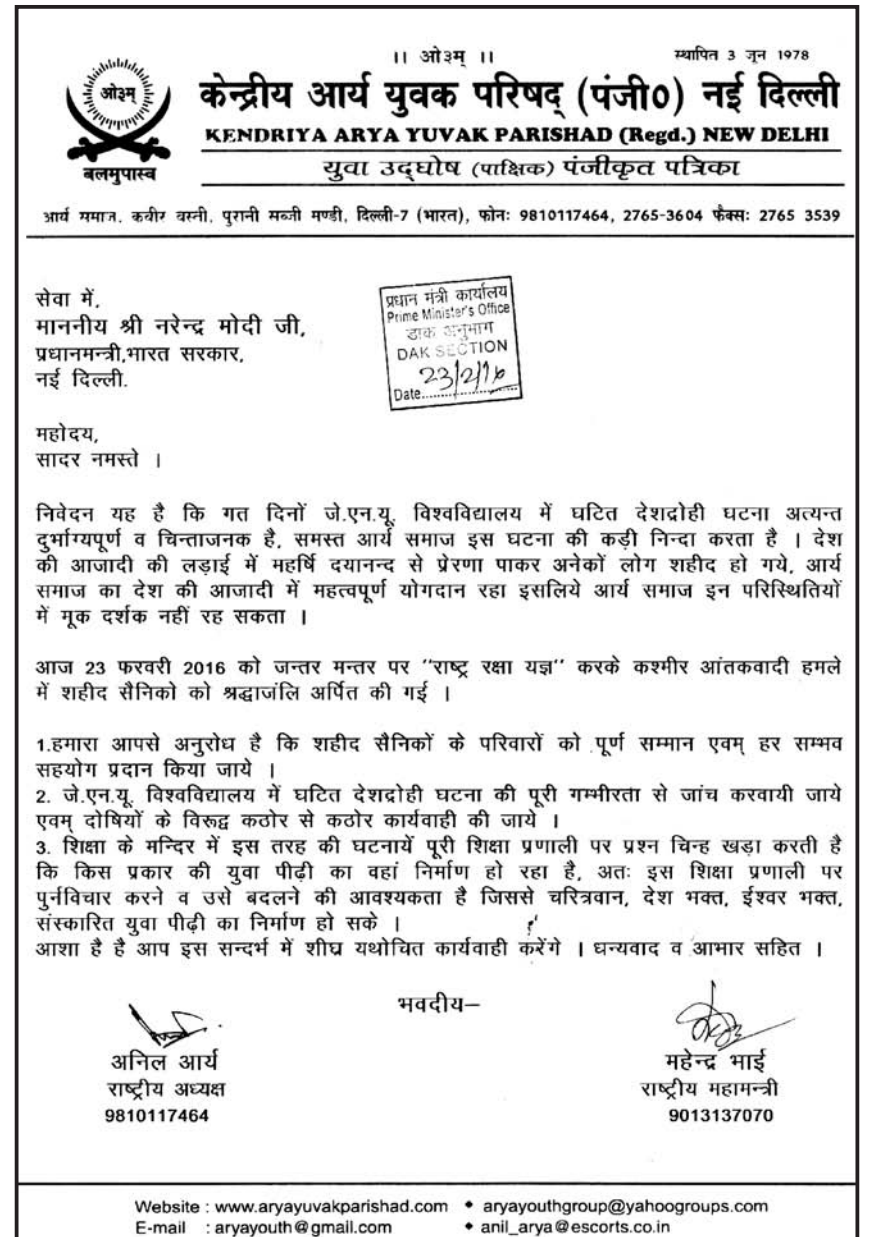 ।। ओ३म् ।।
स्थापित 3 जून 1978
ओ३म्
बलमुपास्व
केन्द्रीय आर्य युवक परिषद् (पंजी०) नई दिल्ली
KENDRIYA ARYA YUVAK PARISHAD (Regd.) NEW DELHI
युवा उद्घोष (पाक्षिक) पंजीकृत पत्रिका
आर्य समाज, कबीर बस्ती, पुरानी सब्जी मण्डी, दिल्ली-7 (भारत), फोनः 9810117464, 2765-3604 फैक्सः 2765 3539
सेवा में,
माननीय श्री नरेन्द्र मोदी जी,
प्रधानमन्त्री,भारत सरकार,
नई दिल्ली.
प्रधान मंत्री कार्यालय
Prime Minister's Office
डाक अनुभाग
DAK SECTION
23/2/16
Date..........
महोदय,
सादर नमस्ते ।
निवेदन यह है कि गत दिनों जे.एन.यू. विश्वविद्यालय में घटित देशद्रोही घटना अत्यन्त
दुर्भाग्यपूर्ण व चिन्ताजनक है, समस्त आर्य समाज इस घटना की कड़ी निन्दा करता है । देश
की आजादी की लड़ाई में महर्षि दयानन्द से प्रेरणा पाकर अनेकों लोग शहीद हो गये, आर्य
समाज का देश की आजादी में महत्वपूर्ण योगदान रहा इसलिये आर्य समाज इन परिस्थितियों
में मूक दर्शक नहीं रह सकता ।
आज 23 फरवरी 2016 को जन्तर मन्तर पर ''राष्ट्र रक्षा यज्ञ'' करके कश्मीर आंतकवादी हमले
में शहीद सैनिको को श्रद्धाजंलि अर्पित की गई ।
1.हमारा आपसे अनुरोध है कि शहीद सैनिकों के परिवारों को पूर्ण सम्मान एवम् हर सम्भव
सहयोग प्रदान किया जाये ।
2. जे.एन.यू. विश्वविद्यालय में घटित देशद्रोही घटना की पूरी गम्भीरता से जांच करवायी जाये
एवम् दोषियों के विरूद्व कठोर से कठोर कार्यवाही की जाये ।
3. शिक्षा के मन्दिर में इस तरह की घटनायें पूरी शिक्षा प्रणाली पर प्रश्न चिन्ह खड़ा करती है
कि किस प्रकार की युवा पीढ़ी का वहां निर्माण हो रहा है, अतः इस शिक्षा प्रणाली पर
पुर्नविचार करने व उसे बदलने की आवश्यकता है जिससे चरित्रवान, देश भक्त, ईश्वर भक्त,
संस्कारित युवा पीढ़ी का निर्माण हो सके ।
आशा है है आप इस सन्दर्भ में शीघ्र यथोचित कार्यवाही करेंगे । धन्यवाद व आभार सहित ।
भवदीय–
अनिल आर्य
राष्ट्रीय अध्यक्ष
9810117464
महेन्द्र भाई
राष्ट्रीय महामन्त्री
9013137070
Website : www.aryayuvakparishad.com ◆ aryayouthgroup@yahoogroups.com
E-mail : aryayouth@gmail.com ◆ anil_arya@escorts.co.in